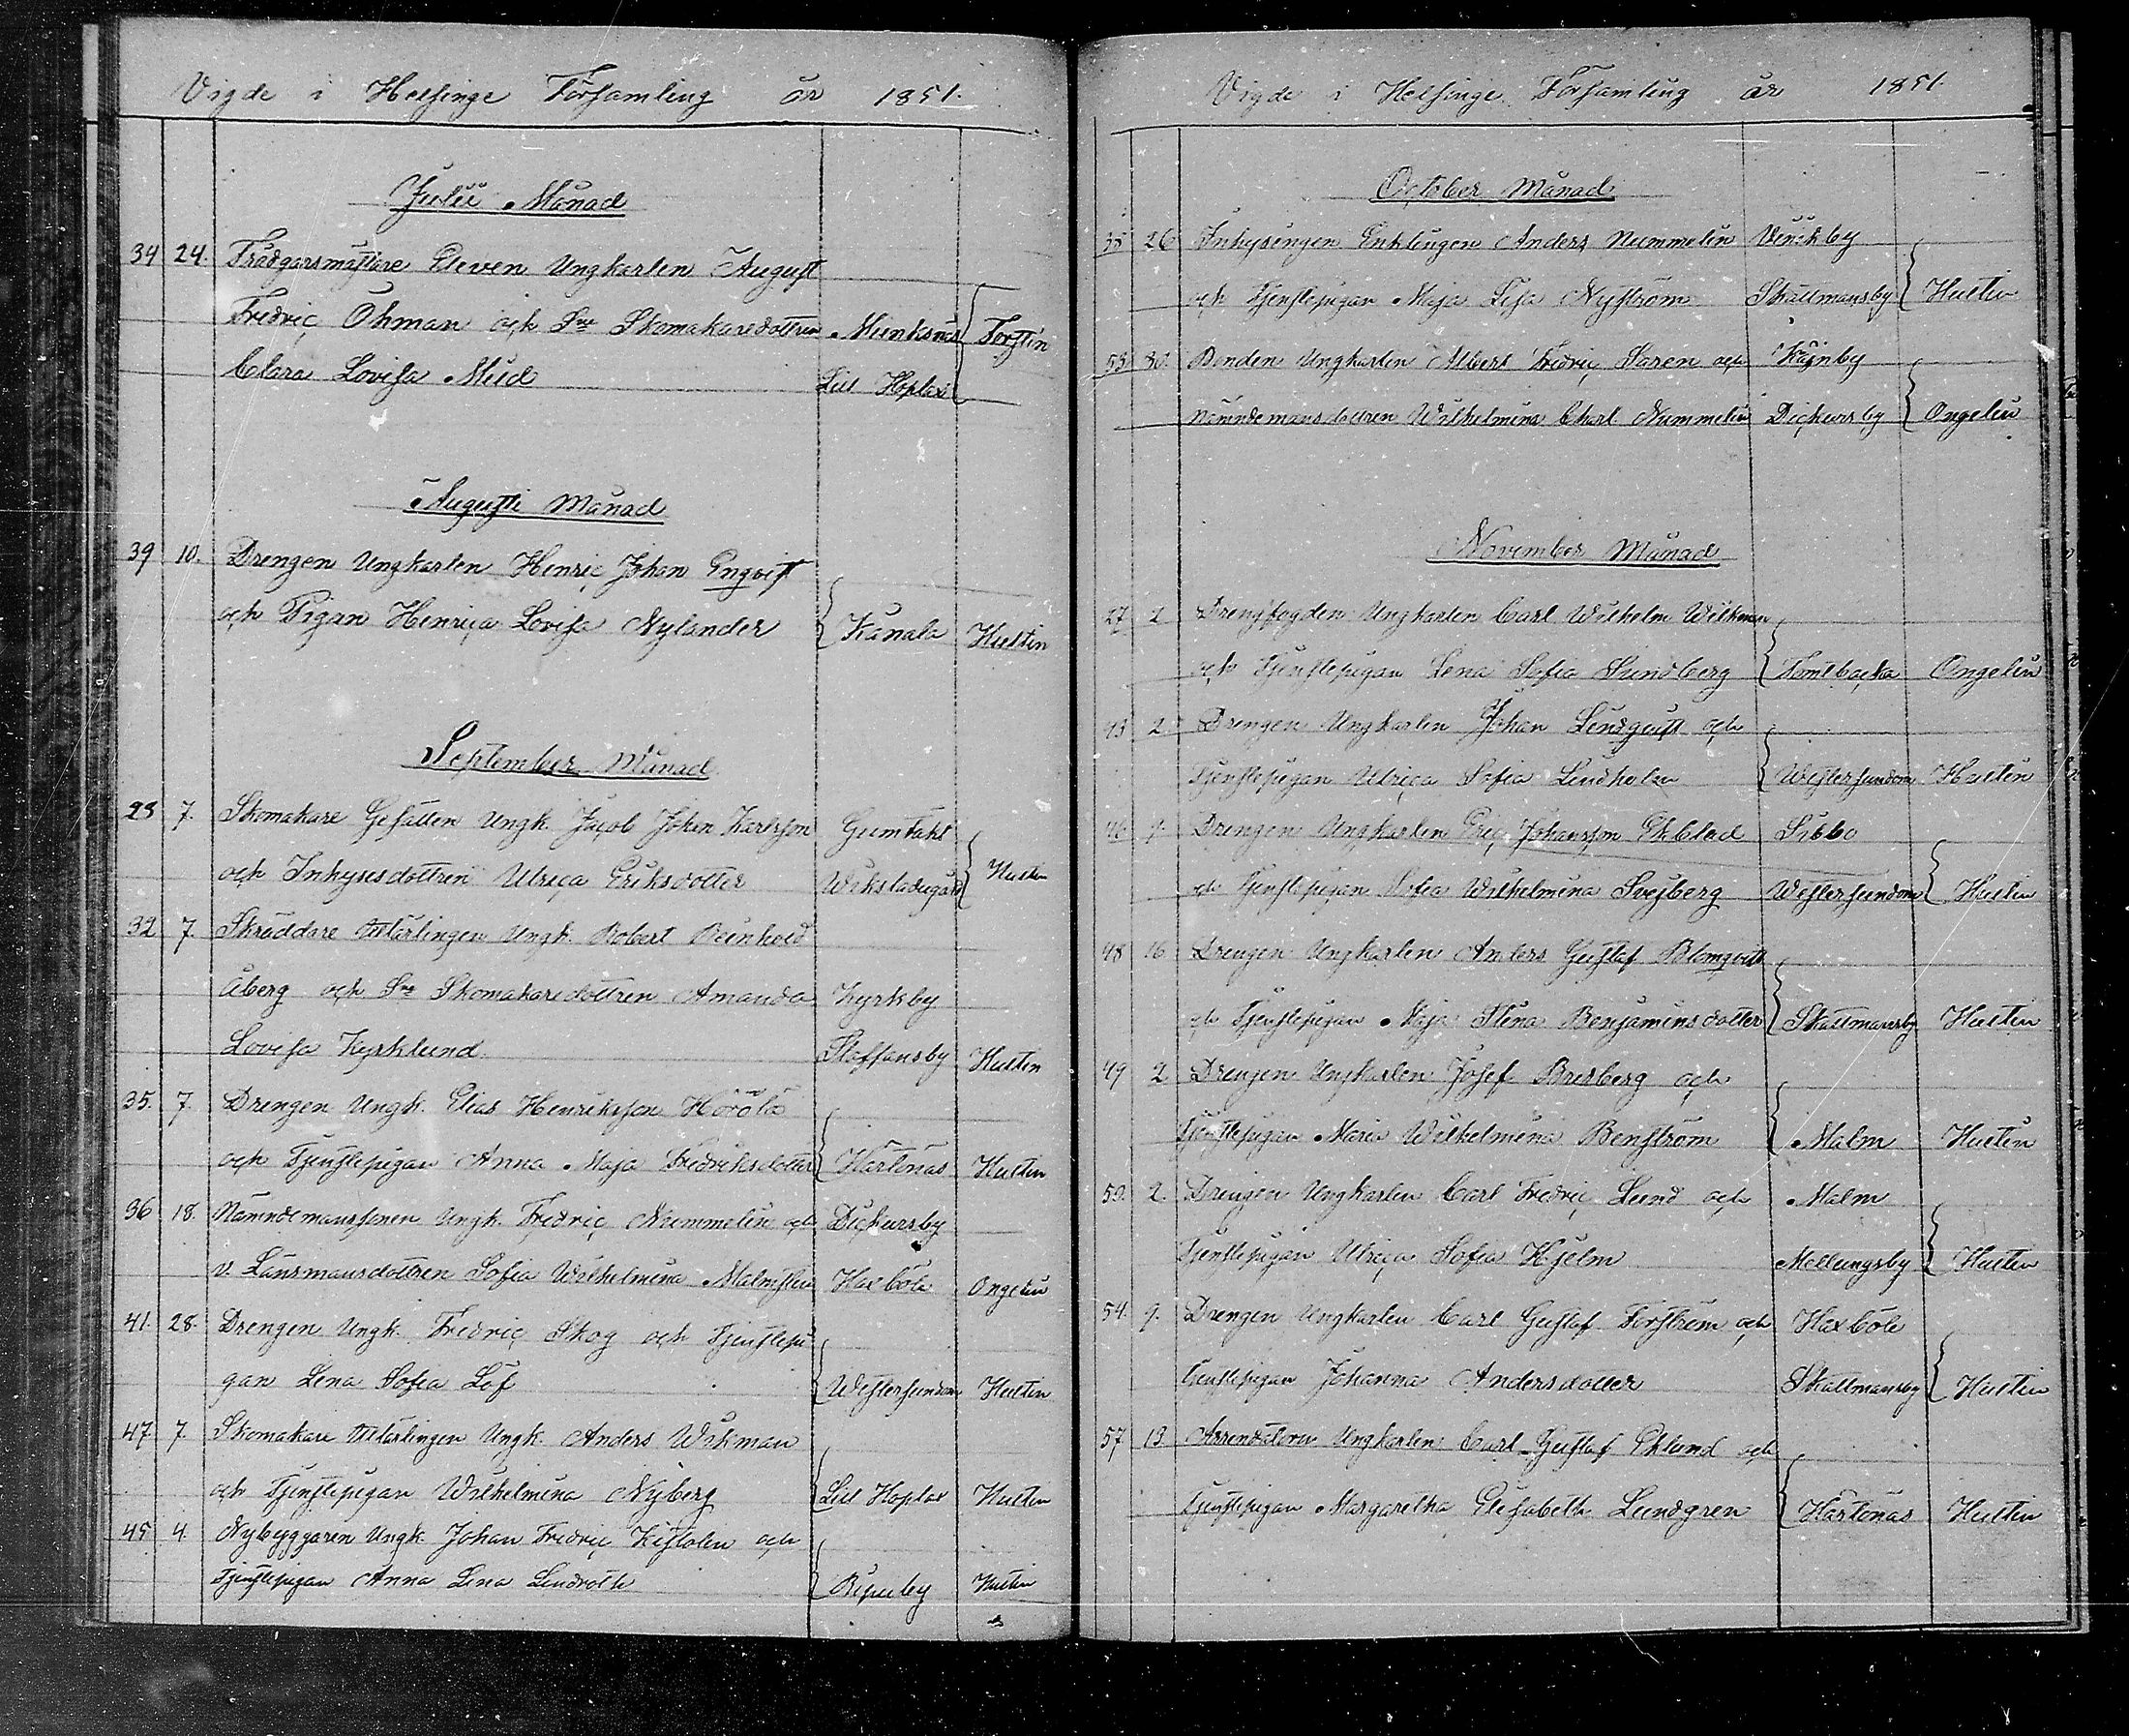 Vigde i Helsinge Församling år 1851.
Julii Månad
34 24. Trädgårsmästare Eleven Ungkarlen August
Fredric Öhman och Sne Skomakaredottren Munksnäs Forstin
Clara Lovisa Meid Lill Hoplax
Augusti Månad
39 10. Drengen Ungkarlen Henric Johan Engvist
och Pigan Henrica Lovisa Nylander Kånala Hultin
September Månad
23 7. Skomakare Gesällen Ungk. Jacob Johan Karlsson Gumtäkt
och Inhysesdottren Ulrica Eriksdotter Wiksladugård Hultin
32 7. Skräddare Utlärlingen Ungk. Robert Reinhold
Åberg och Sne Skomakaredottren Amanda Kyrkby
Lovisa Kyrklund Staffansby Hultin
35. 7. Drengen Ungk. Elias Henriksson Hörölä
och Tjenstepigan Anna Maja Fredriksdotter Hartonäs Hultin
36 18. Nämndemanssonen Ungk. Fredric Nummelin och Dickursby
v. Länsmansdottren Sofia Wilhelmina Malmsten Haxböle Ongelin
41. 28. Drengen Ungk. Fredric Skog och Tjenstepi
gan Lena Sofia Löf Westersundom Hultin
47. 7. Skomakare Utlärlingen Ungk. Anders Wikman
och Tjenstepigan Wilhelmina Nyberg Lill Hoplax Hultin
45 4. Nybyggaren Ungk. Johan Fredric Kistolen och
Tjenstepigan Anna Lena Lindroth Ripuby Hultin
Vigde i Helsinge Församling år 1851.
October Månad
38 26 Inhysingen Enklingen Anders Nummelin Vinikby
och Tjenstepigan Maja Lisa Nyström Skattmansby Hultin
53. 30. Bonden Ungkarlen Albert Fredric Saren och Käinby
Nämndemansdottren Wilhelmina Charl. Nummelin Dickursby Ongelin
November Månad
27 2 Drengfogden Ungkarlen Carl Wilhelm Wilkman
och Tjenstepigan Lena Sofia Sundberg Tomtbacka Ongelin
43 2 Drengen Ungkarlen Johan Lindquist och
Tjenstepigan Ulrica Sofia Lindholm Westersundom Hultin
46 9. Drengen Ungkarlen Eric Johansson Ekblad Sibbo
och Tjenstepigan Sofia Wilhelmina Sveiberg Westersundom Hultin
48 16 Drengen Ungkarlen Anders Gustaf Blomqvist
och Tjenstepigan Maja Stina Benjaminsdotter Skattmansby Hultin
49 2 Drengen Ungkarlen Josef Bresberg och
Tjenstepigan Maria Wilhelmina Benström Malm Hultin
50. 2. Drengen Ungkarlen Carl Fredric Lund och Malm
Tjenstepigan Ulrica Sofia Hjelm Mellungsby Hultin
54. 9. Drengen Ungkarlen Carl Gustaf Forström och Haxböle
Tjenstepigan Johanna Andersdotter Skattmansby Hultin
57 13 Arrendatorn Ungkarlen Carl Gustaf Eklund och
Tjenstepigan Margaretha Elisabeth Lundgren Hartonäs Hultin